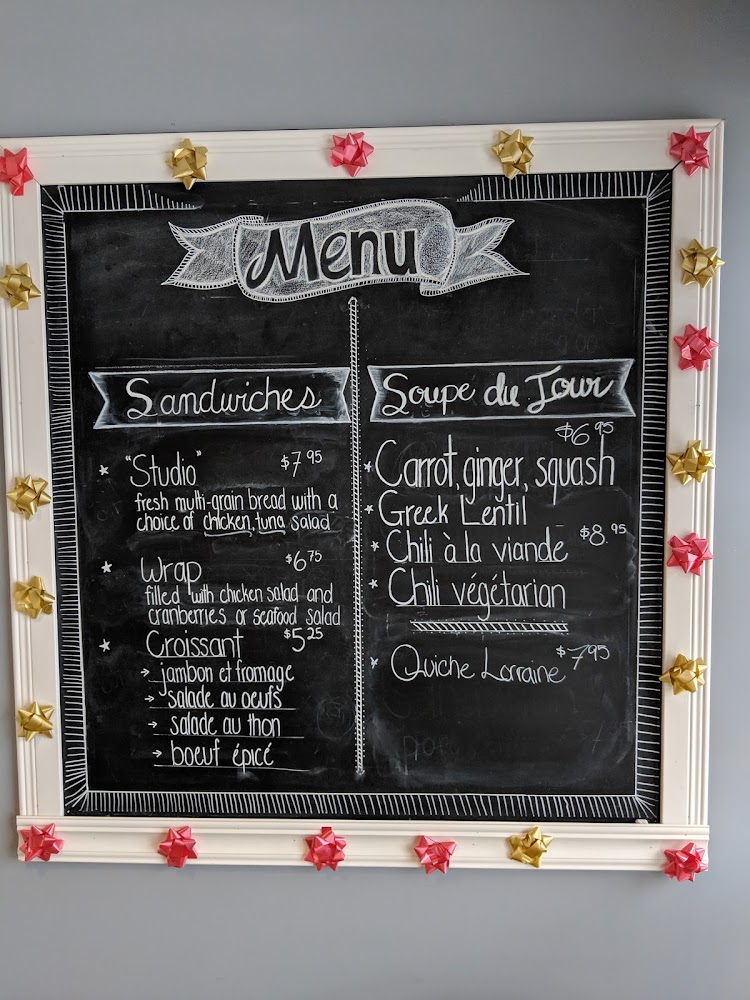 Menu
Sandwiches
"Studio" $7.95
fresh multi-grain bread with a
choice of chicken, tuna salad
Wrap $6.75
filled with chicken salad and
cranberries or seafood salad
Croissant $5.25
→ jambon et fromage
→ salade au oeufs
→ salade au thon
→ boeuf épicé
Soupe du Jour
$6.95
Carrot, ginger, squash
Greek Lentil
Chili à la viande $8.95
Chili végétarian
Quiche Lorraine $7.95